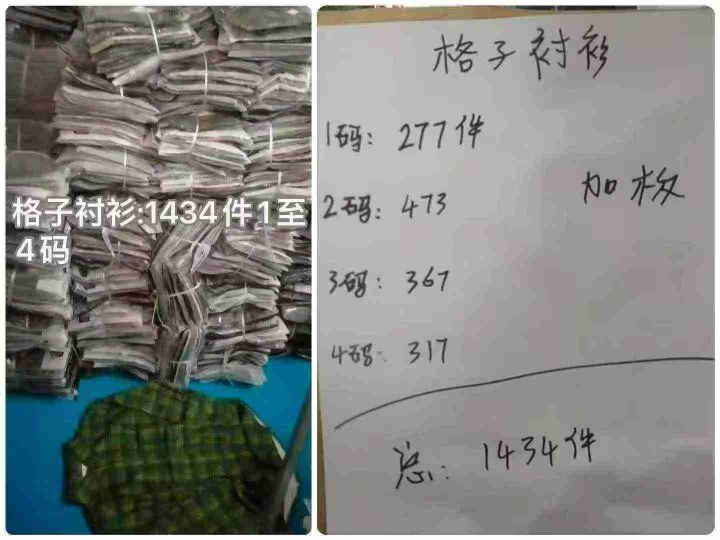 格子衬衫:1434件1至
4码
格子衬衫
1码: 277件
加核
2码: 473
3码: 367
4码: 317
总: 1434件